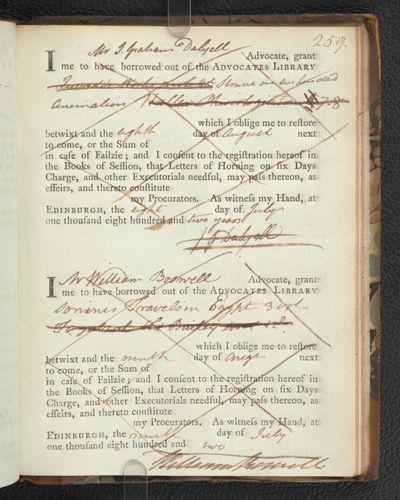 259.
I Mr J. Graham Dalyell Advocate, grant
me to have borrowed out of the ADVOCATES LIBRARY
on suspended
animation
which I oblige me to restore
betwixt and the eighth day of August next
to come, or the Sum of
in case of Failzie; and I consent to the registration hereof in
the Books of Session, that Letters of Horning on six Days
Charge, and other Executorials needful, may pass thereon, as
effeirs, and thereto constitute
my Procurators. As witness my Hand, at
EDINBURGH, the eight day of July
one thousand eight hundred and two years
J G Dalyell
I Mr William Boswell Advocate, grant
me to have borrowed out of the ADVOCATES LIBRARY
Sonninis Travels in Egypt 3 vol
which I oblige me to restore
betwixt and the ninth day of Augt next
to come, or the Sum of
in case of Failzie; and I consent to the registration hereof in
the Books of Session, that Letters of Horning on six Days
Charge, and other Executorials needful, may pass thereon, as
effeirs, and thereto constitute
my Procurators. As witness my Hand, at
EDINBURGH, the ninth day of July
one thousand eight hundred and two
William Boswell